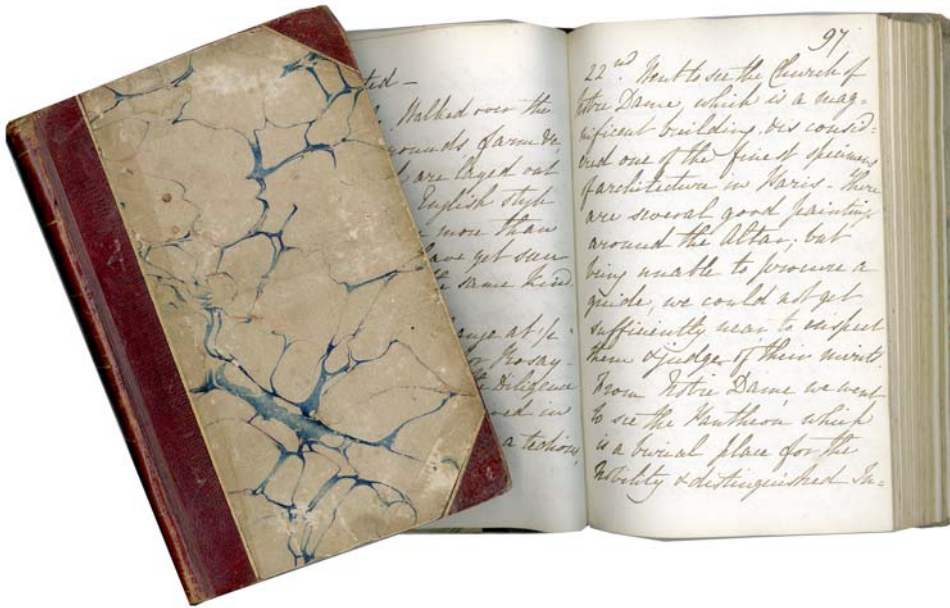 ted -
Walked over the
rounds farm &c
are layed out
English style
more than
have yet seen
the same kind.
ange at 1/2
for Rosay -
the Diligence
ved in
a tedious
97
22nd. Went to see the Church of
Notre Dame, which is a mag=
nificent building, & is consid=
ered one of the finest specimens
of architecture in Paris - There
are several good paintings
around the Altar; but
being unable to procure a
guide, we could not get
sufficiently near to inspect
them & judge of their merits.
From Notre Dame we went
to see the Pantheon which
is a burial place for the
Nobility & distinguished In=